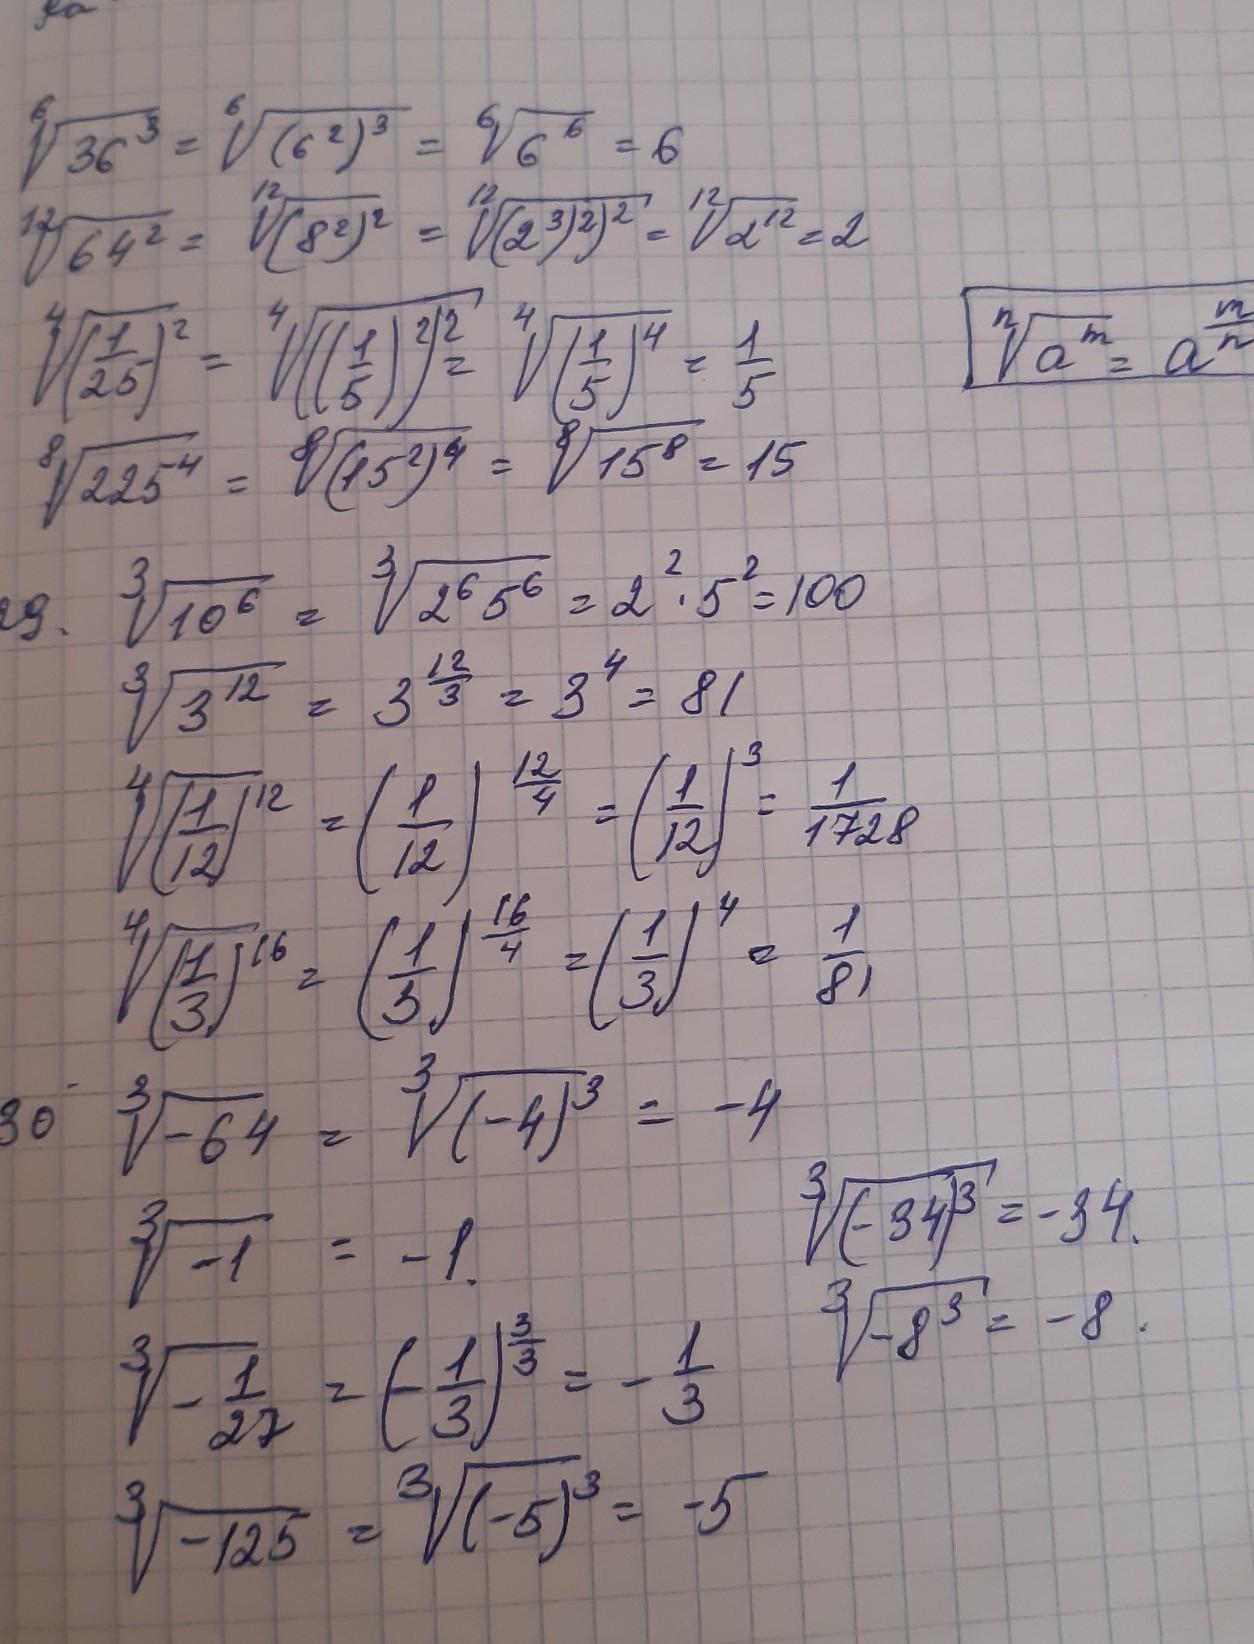 ⁶√36³ = ⁶√(6²)³ = ⁶√6⁶ = 6
¹²√64² = ¹²√(8²)² = ¹²√(2³)²)² = ¹²√2¹² = 2
⁴√(1/25)² = ⁴√((1/5)²)² = ⁴√(1/5)⁴ = 1/5
ⁿ√aᵐ = a^(m/n)
⁸√225⁴ = ⁸√(15²)⁴ = ⁸√15⁸ = 15
29. ³√10⁶ = ³√2⁶5⁶ = 2²·5² = 100
³√3¹² = 3^(12/3) = 3⁴ = 81
⁴√(1/12)¹² = (1/12)^(12/4) = (1/12)³ = 1/1728
⁴√(1/3)¹⁶ = (1/3)^(16/4) = (1/3)⁴ = 1/81
30 ³√-64 = ³√(-4)³ = -4
³√-1 = -1.
³√(-34)³ = -34.
³√-8³ = -8.
³√-1/27 = (-1/3)^(3/3) = -1/3
³√-125 = ³√(-5)³ = -5